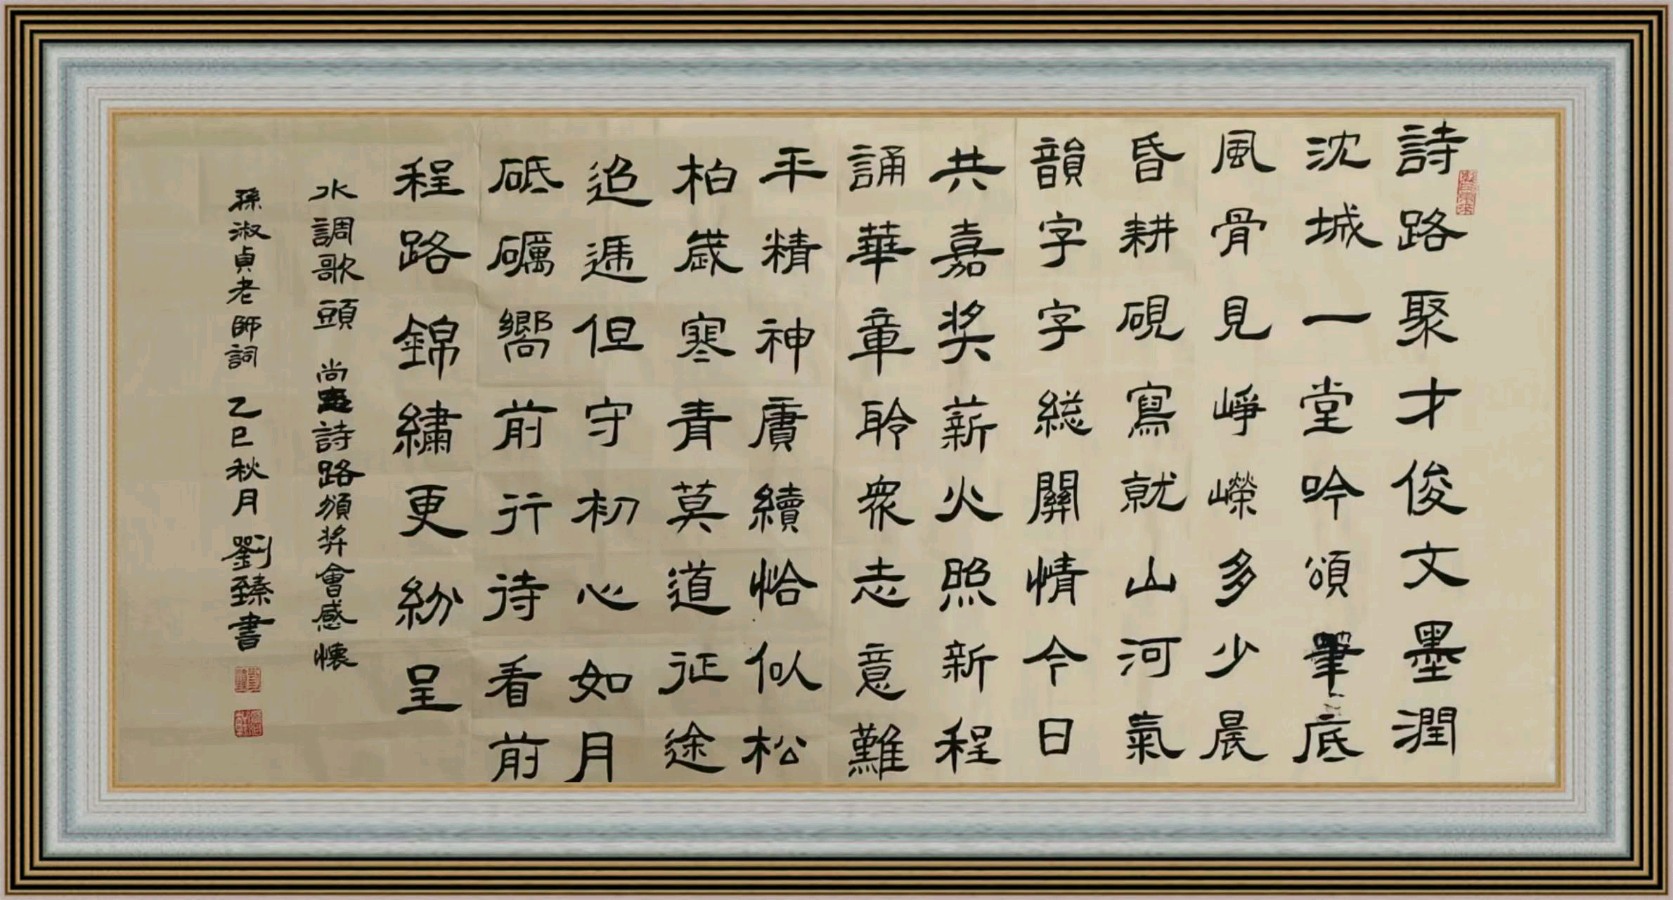 詩路聚才俊文墨潤
沈城一堂吟頌筆底
風骨見崢嶸多少晨
昏耕硯寫就山河氣
韻字字総關情今日
共嘉奖薪火照新程
誦華章聆衆志意難
平精神賡續恰似松
柏歲寒青莫道征途
迢遞但守初心如月
砥礪嚮前行待看前
程路錦繡更紛呈
水調歌頭 尚詩路頒奖會感懷
孫淑貞老師詞 乙巳秋月 劉臻書